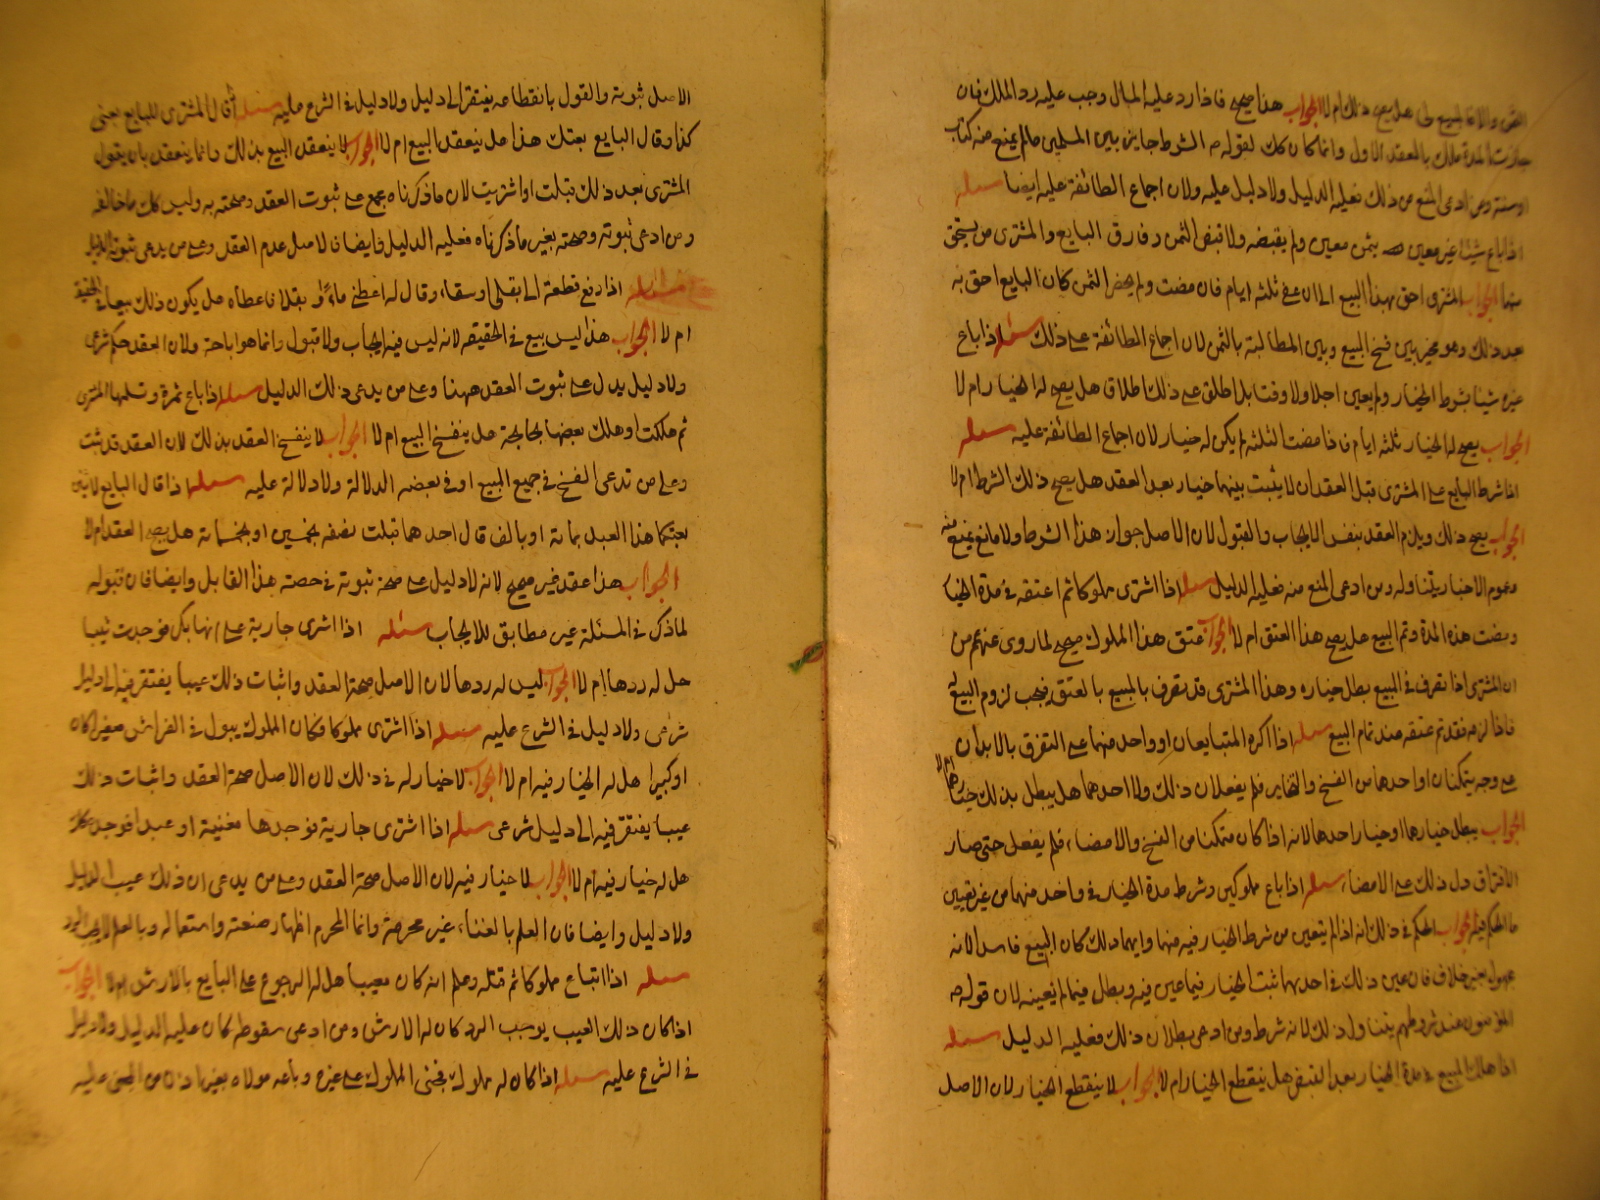 الثمن والا فالمبيع لى هل يصح ذلك ام لا الجواب هذا صحيح فاذا رد عليه المال وجب عليه رد الملك فان
جازت المدة ملك بالعقد الاول وانما كان كك لقوله ص الشرط جايز بين المسلمين مالم يمنع منه كتاب
او سنة ومن ادعى المنع من ذلك فعليه الدليل ولا دليل عليه ولان اجماع الطائفة عليه ايضا مسئله
اذا باع شيئا غير معين بثمن معين ولم يقبضه ولا قبض الثمن وفارق البايع والمشترى من يستحق
منهما الجواب المشترى احق بهذا البيع الى ان يمضى ثلثه ايام فان مضت ولم يحضر الثمن كان البايع احق به
بعد ذلك وهو مخير بين فسخ البيع وبين المطالبة بالثمن لان اجماع الطائفة على ذلك مسئله اذا باع
غيره شيئا بشرط الخيار ولم يعين اجلا ولا وقتا بل اطلق على ذلك اطلاق هل يصح له الخيار ام لا
الجواب يصح له الخيار ثلثه ايام فاذا مضت الثلثه لم يكن له خيار لان اجماع الطائفة عليه مسئله
اذا شرط البايع على المشترى قبل العقد ان لا يثبت بينهما خيار بعد العقد هل يصح ذلك الشرط ام لا
الجواب يصح ذلك ويلزم العقد بنفس الايجاب والقبول لان الاصل جواز هذا الشرط ولا مانع يمنع منه
وعموم الاخبار يتناوله ومن ادعى المنع منه فعليه الدليل مسئله اذا اشترى مملوكا ثم اعتقه فى مدة الخيار
ومضت هذه المدة وتم البيع هل يصح هذا العتق ام لا الجواب عتق هذا المملوك صحيح لما روى عنهم من
ان المشترى اذا تصرف فى المبيع بطل خياره وهذا المشترى قد تصرف بالمبيع بالعتق فيجب لزوم البيع له
فاذا لزمه فقد تم عتقه عند تمام البيع مسئله اذا اكره المتبايعان او واحد منهما على التفرق بالابدان
على وجه يتمكنان او احدهما من الفسخ والتخاير فلم يفعلان ذلك ولا احدهما هل يبطل بذلك خيارهما ام لا
الجواب يبطل خيارهما او خيار احدهما لانه اذا كان متمكنا من الفسخ والامضاء فلم يفعل حتى صار
الافتراق دل ذلك على الامضاء مسئله اذا باع مملوكين وشرط مدة الخيار فى واحد منهما من غير تعيين
ما الحكم فيه الجواب الحكم فى ذلك انه اذا لم يتعين من شرط الخيار فيه منهما وابهما ذلك كان البيع فاسدا لانه
مجهول بغير خلاف فان عين ذلك فى احدهما ثبت الخيار فيما عين فيه وبطل فيما لم يعينه لان قوله ص
المؤمنون عند شروطهم يتناول ذلك لانه شرط ومن ادعى بطلان ذلك فعليه الدليل مسئله
اذا هلك المبيع فى مدة الخيار بعد القبض هل ينقطع الخيار ام لا الجواب لا ينقطع الخيار لان الاصل
الاصل ثبوته والقول بانقطاعه يفتقر الى دليل ولا دليل فى الشرع عليه مسئله اذا قال المشترى للبايع بعنى
كذا وقال البايع بعتك هذا هل ينعقد البيع ام لا الجواب لا ينعقد البيع بذلك وانما ينعقد بان يقول
المشترى بعد ذلك قبلت او اشتريت لان ما ذكرناه مجمع على ثبوت العقد وصحته به وليس كك ما خالفه
ومن ادعى ثبوته وصحته بغير ما ذكرناه فعليه الدليل وايضا فالاصل عدم العقد وعلى من يدعى ثبوته الدليل
مسئله اذا دفع قطعة الى بقلى او سقاء وقال له اعطنى ماءً او بقلا فاعطاه هل يكون ذلك بيعا فى الحقيقة
ام لا الجواب هذا ليس بيع فى الحقيقه لانه ليس فيه ايجاب ولا قبول وانما هو اباحة ولان العقد حكم شرعى
ولا دليل يدل على ثبوت العقد ههنا وعلى من يدعى ذلك الدليل مسئله اذا باع ثمرة وتسلمها المشترى
ثم هلكت او هلك بعضها بجايحة هل ينفسخ البيع ام لا الجواب لا ينفسخ العقد بذلك لان العقد قد ثبت
وعلى من تدعى الفسخ فى جميع المبيع او فى بعضه الدلالة ولا دلالة عليه مسئله اذا قال البايع لاثنين
بعتكما هذا العبد بمائة او بالف قال احدهما قبلت نصفه بخمسين او بخمسمائة هل يصح العقد ام لا
الجواب هذا عقد غير صحيح لانه لا دليل على صحة ثبوته فى حصته هذا القابل وايضا فان قبوله
لما ذكر فى المسئلة غير مطابق للايجاب مسئله اذا اشترى جارية على انها بكر فوجدت ثيبا
هل له ردها ام لا الجواب ليس له ردها لان الاصل صحة العقد واثبات ذلك عيبا يفتقر فيه الى دليل
شرعى ولا دليل فى الشرع عليه مسئله اذا اشترى مملوكا فكان المملوك يبول فى الفراش صغيرا كان
او كبيرا هل له الخيار فيه ام لا الجواب لا خيار له فى ذلك لان الاصل صحة العقد واثبات ذلك
عيبا يفتقر فيه الى دليل شرعى مسئله اذا اشترى جارية فوجدها مغنية او عبدا فوجده كك
هل له خيار فيه ام لا الجواب لا خيار فيه لان الاصل صحة العقد وعلى من يدعى ان ذلك عيب الدليل
ولا دليل وايضا فان العلم بالغناء غير محرمة وانما المحرم اظهار صنعته واستعماله وبالعلم لا يجب الرد
مسئله اذا ابتاع مملوكا ثم قتله وعلم انه كان معيبا هل له الرجوع على البايع بالارش ام لا الجواب
اذا كان ذلك العيب يوجب الرد كان له الارش ومن ادعى سقوطه كان عليه الدليل ولا دليل
فى الشرع عليه مسئله اذا كان له مملوك فجنى المملوك على غيره وباعه مولاه بغير اذن من المجنى عليه